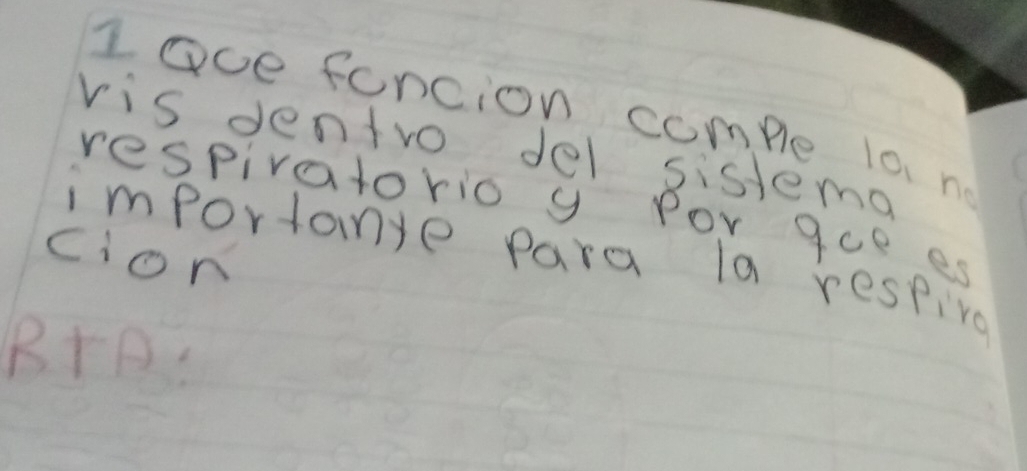 1 Que funcion cumple la na
ris dentro del sistema
respiratorio y por que es
importante para la respira
cion
RTA: